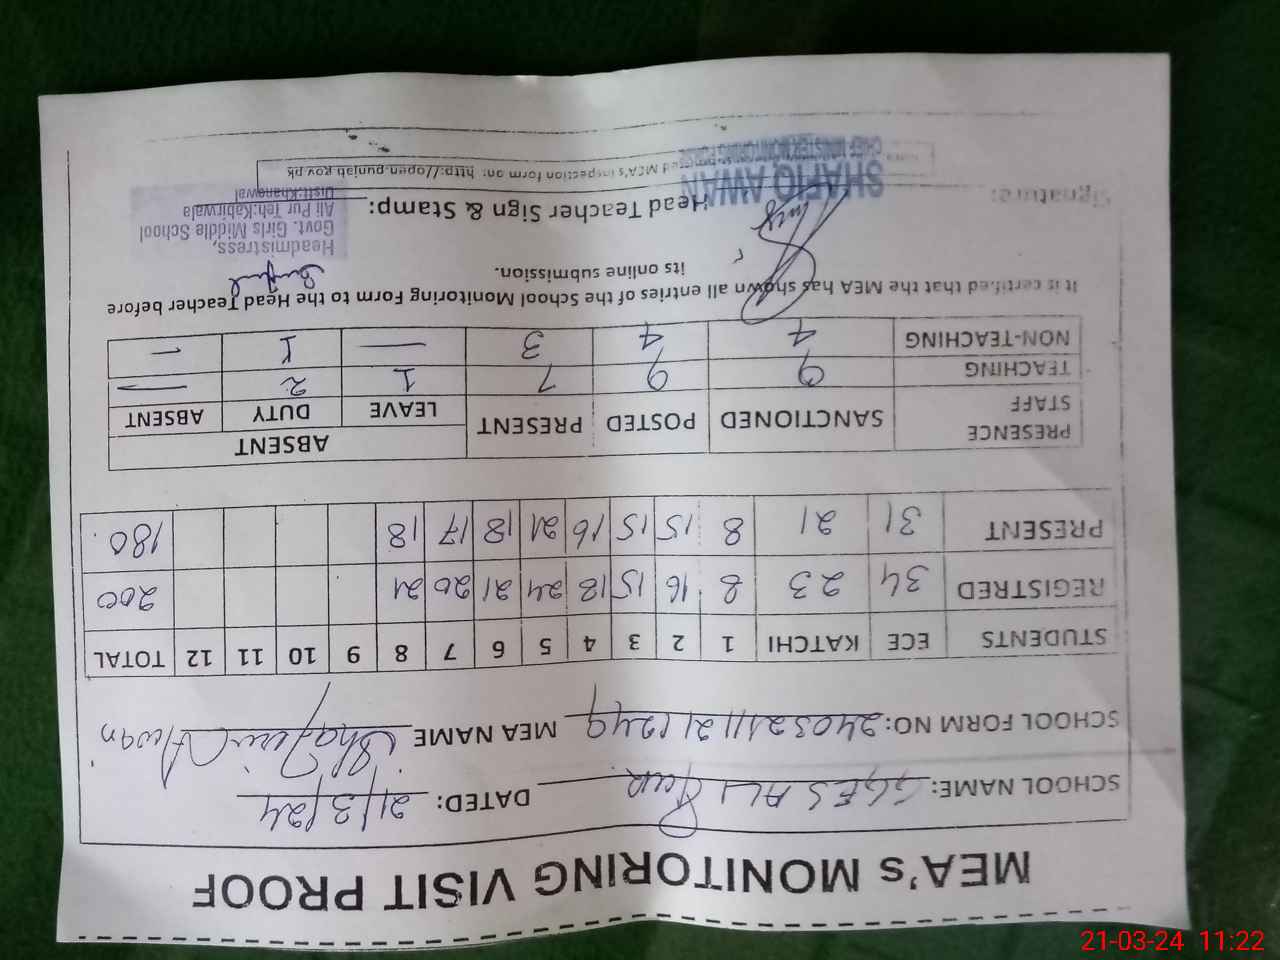 MEA's MONITORING VISIT PROOF
SCHOOL NAME: GGES ALI Pur DATED: 21/3/24
SCHOOL FORM NO: MEA NAME Shafiq Awan
STUDENTS ECE KATCHI 1 2 3 4 5 6 7 8 9 10 11 12 TOTAL
REGISTRED 34 23 8 16 15 18 24 21 20 21 200
PRESENT 31 21 8 15 15 16 21 18 17 18 180
PRESENCE STAFF SANCTIONED POSTED PRESENT ABSENT
LEAVE DUTY ABSENT
TEACHING 9 9 7 1 2 —
NON-TEACHING 4 4 3 — 1 —
It is certified that the MEA has shown all entries of the School Monitoring Form to the Head Teacher before
its online submission.
Signature: Head Teacher Sign & Stamp:
SHAFIQ AWAN
CHIEF MINISTER MONITORING FORCE
Headmistress,
Govt. Girls Middle School
Ali Pur Teh:Kabirwala
Distt:Khanewal
MEA's inspection form on: http://open.punjab.gov.pk
21-03-24 11:22